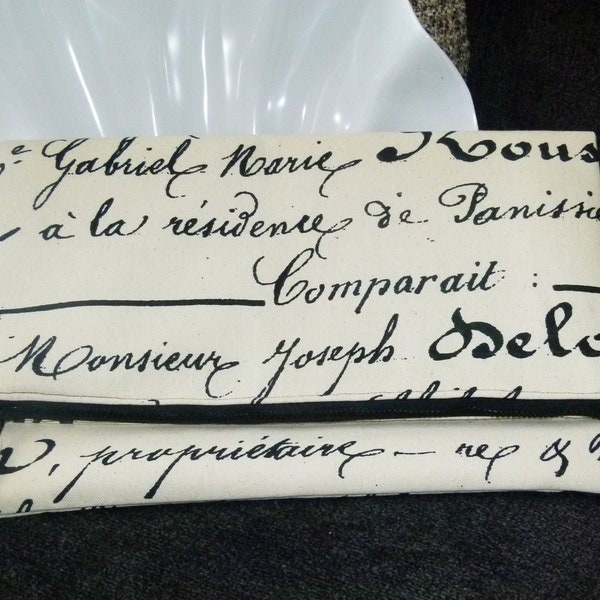 Gabriel Marie Rous
à la résidence de Panissi
Comparait :
Monsieur Joseph Delo
propriétaire – re &